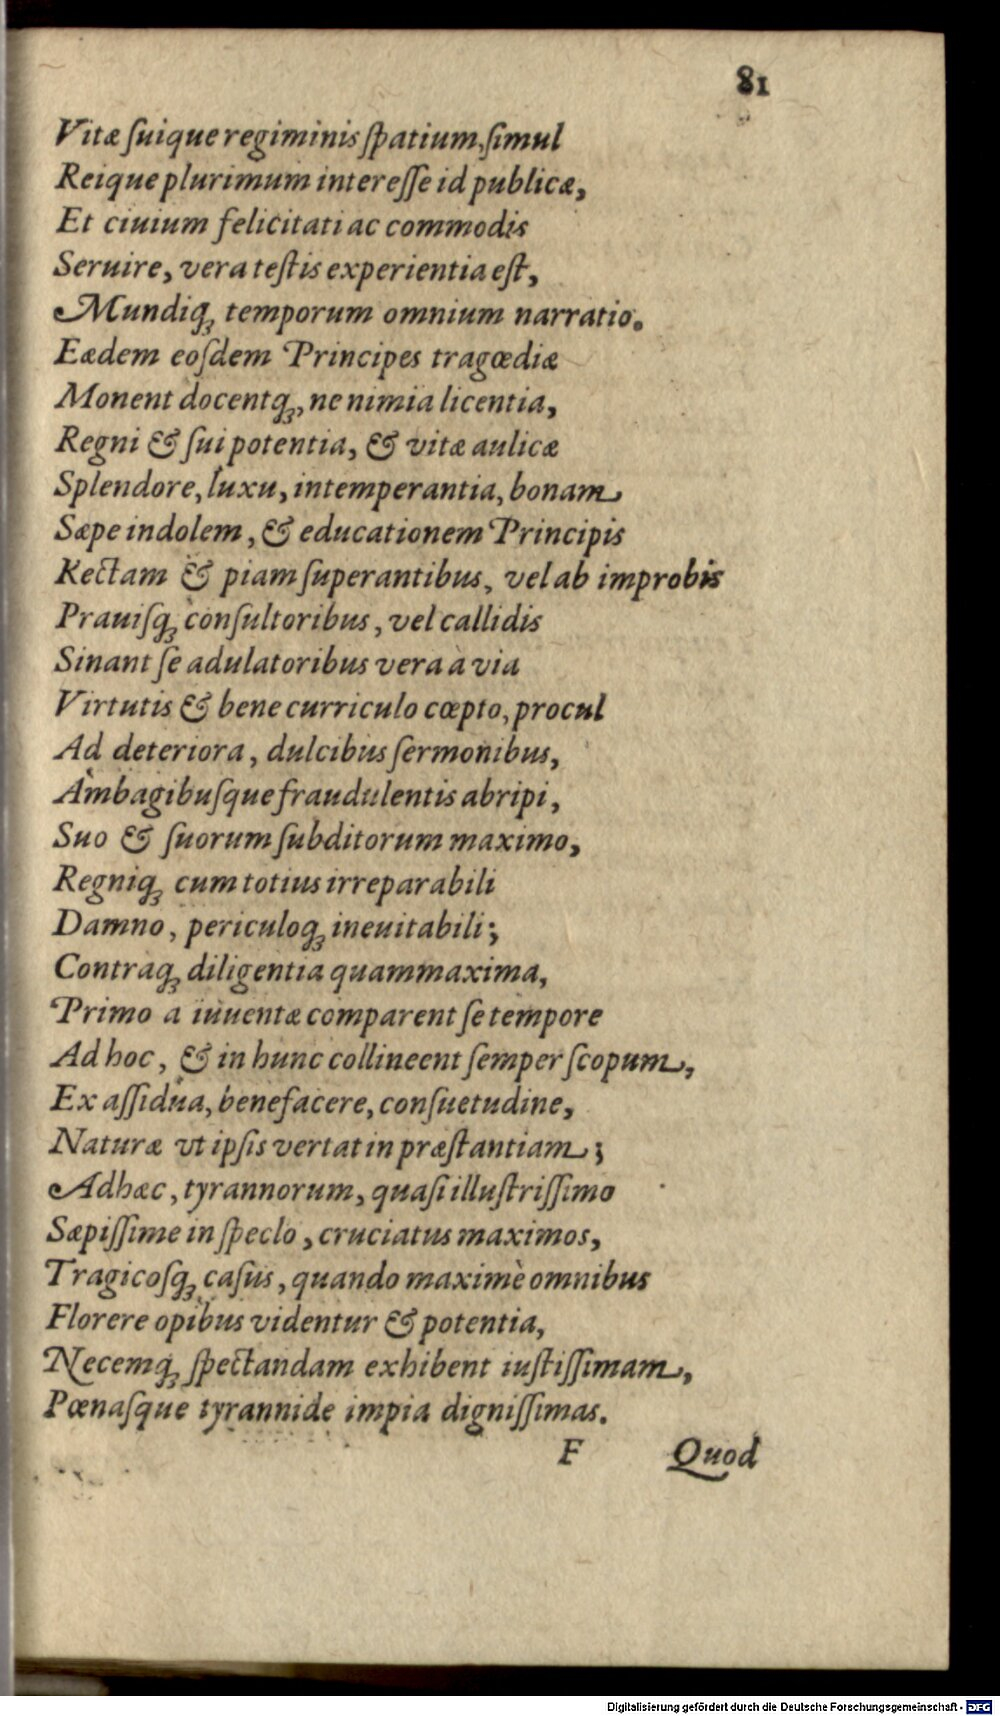 81
Vitæ ſuique regiminis ſpatium, ſimul
Reique plurimum intereſſe id publicæ,
Et ciuium felicitati ac commodis
Seruire, vera teſtis experientia eſt,
Mundiq́ꝫ temporum omnium narratio.
Eædem eoſdem Principes tragœdiæ
Monent docentqꝫ, ne nimia licentia,
Regni & ſui potentia, & vitæ aulicæ
Splendore, luxu, intemperantia, bonam
Sæpe indolem, & educationem Principis
Rectam & piam ſuperantibus, vel ab improbis
Prauiſqꝫ conſultoribus, vel callidis
Sinant ſe adulatoribus vera à via
Virtutis & bene curriculo cœpto, procul
Ad deteriora, dulcibus ſermonibus,
Ambagibuſque fraudulentis abripi,
Suo & ſuorum ſubditorum maximo,
Regniqꝫ cum totius irreparabili
Damno, periculoqꝫ ineuitabili;
Contraqꝫ diligentia quam maxima,
Primo a iuuentæ comparent ſe tempore
Ad hoc, & in hunc collineent ſemper ſcopum,
Ex aſſidua, benefacere, conſuetudine,
Naturæ vt ipſis vertat in præſtantiam;
Adhæc, tyrannorum, quaſi illuſtriſſimo
Sæpiſſime in ſpeclo, cruciatus maximos,
Tragicoſqꝫ caſus, quando maximè omnibus
Florere opibus videntur & potentia,
Necemqꝫ ſpectandam exhibent iuſtiſſimam,
Pœnaſque tyrannide impia digniſſimas.
F Quod
Digitalisierung gefördert durch die Deutsche Forschungsgemeinschaft - DFG